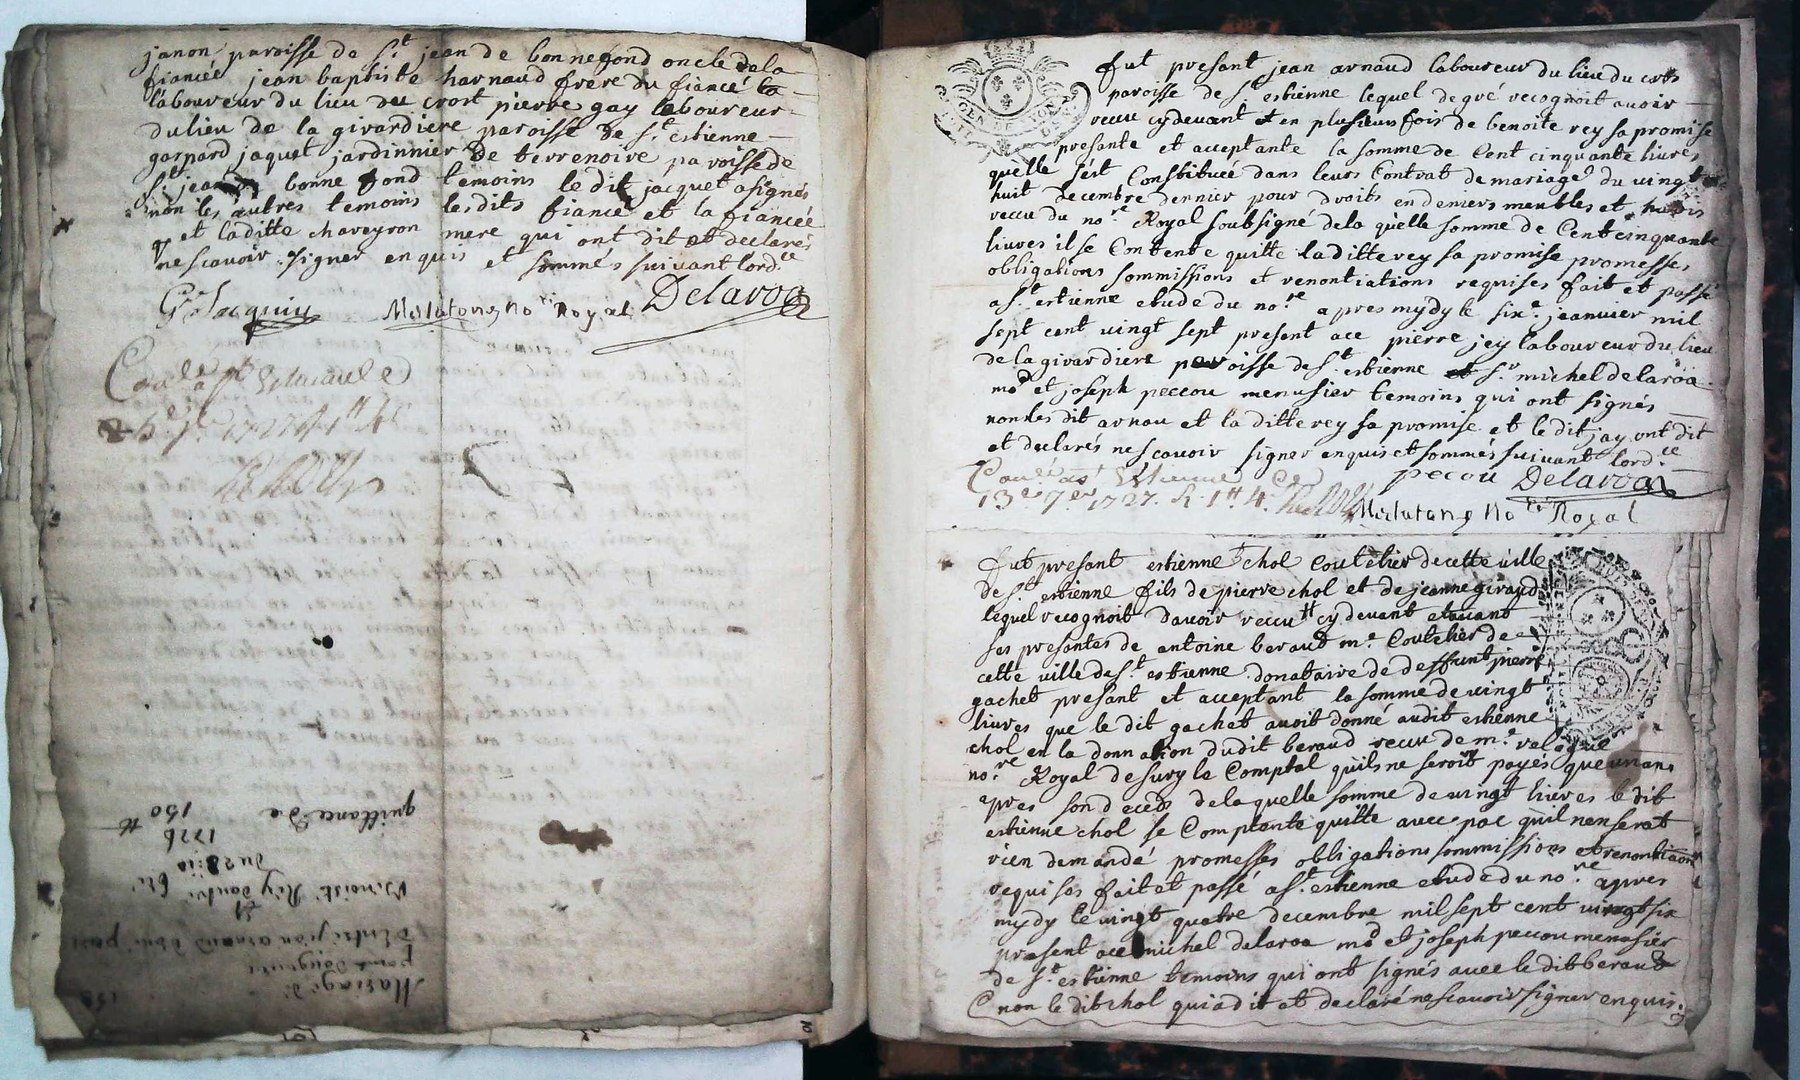 janon paroisse de St jean de bonnefond oncle de la
fiancée jean baptiste harnaud frere du fiancé
laboureur du lieu du crost pierre gay laboureur
du lieu de la girardiere paroisse de St estienne
gaspard jaquet jardinnier de terrenoire paroisse de
St jean bonne fond temoins le dit jacquet a signés
non les autres temoins lesdits fiance et la fiancée
et laditte chaveyron mere qui ont dit et declarés
ne scavoir signer enquis et sommés suivant lordce
Royal Delaroa
quittance de
150 ₶
1726
Mariage
fut presant jean arnaud laboureur du lieu du cros
paroisse de St estienne lequel de gré recognoit avoir
receu cydevant et en plusieurs fois de benoite rey sa promise
presante et acceptante la somme de Cent cinquante livres
quelle sést Constituée dans leurs Contrat de mariage du vingt
huit decembre dernier pour droits en deniers meubles et
receu du nore Royal soubsigné dela quelle somme de Cent cinquante
livres il se Contente quitte laditte rey sa promise promesses
obligations sommissions et renontiations requises fait et passé
a St estienne etude du nore apres mydy le sixe jeanvier mil
sept cent vingt sept present ace pierre jey laboureur du lieu
de la girardiere paroisse de St estienne Sr michel delaroa
md et joseph peccou menusier temoins qui ont signés
non les dit arnau et la ditte rey sa promise et le dit jay ont dit
et declarés ne scavoir signer enquis et sommés suivant lordce
pecou Delaroa
13e 7er 1727. R 1₶ 4s
Royal
fut presant estienne chol Coutelier de cette ville
de St estienne fils de pierre chol et de jeanne giraud
lequel recognoit davoir receu cy devant et avant
ses presantes de antoine beraud me Coutelier de
cette ville de St estienne donataire de deffunt pierre
gachet presant et acceptant la somme de vingt
livres que le dit gachet avoit donné audit estienne
chol en la donnation dudit beraud receu de me
nore Royal de sury le Comptal quils ne seroit payés que un an
apres son deceds de la quelle somme de vingt livres le dit
estienne chol se Comptante quitte avec pac quil nen serat
rien demandé promesses obligations sommissions et renontiaons
requises fait et passé a St estienne etude du nore apres
mydy le vingt quatre decembre mil sept cent vingt six
present ace michel delaroa md et joseph peccou menusier
de St estienne temoins qui ont signés avec le dit beraud
non le dit chol qui a dit et declaré ne scavoir signer enquis